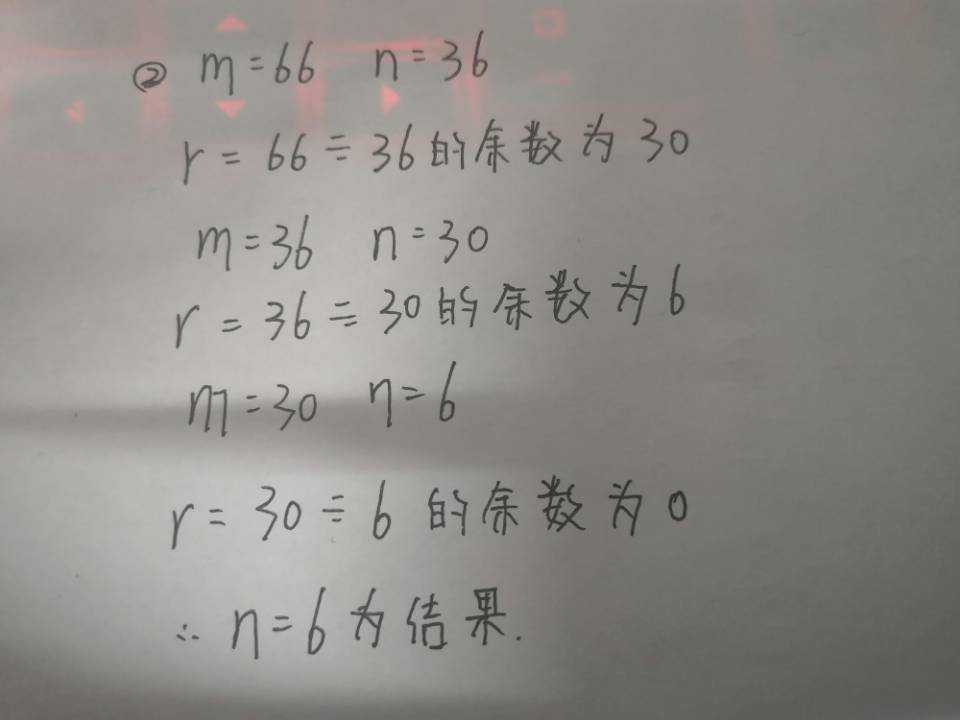 ② m=66 n=36
r=66÷36的余数为30
m=36 n=30
r=36÷30的余数为6
m=30 n=6
r=30÷6的余数为0
∴n=6为结果.